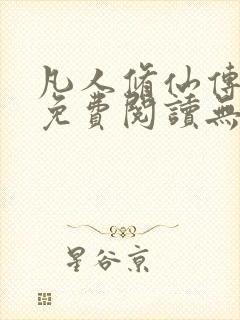 凡人脩仙傳
免費閱讀無
星谷京